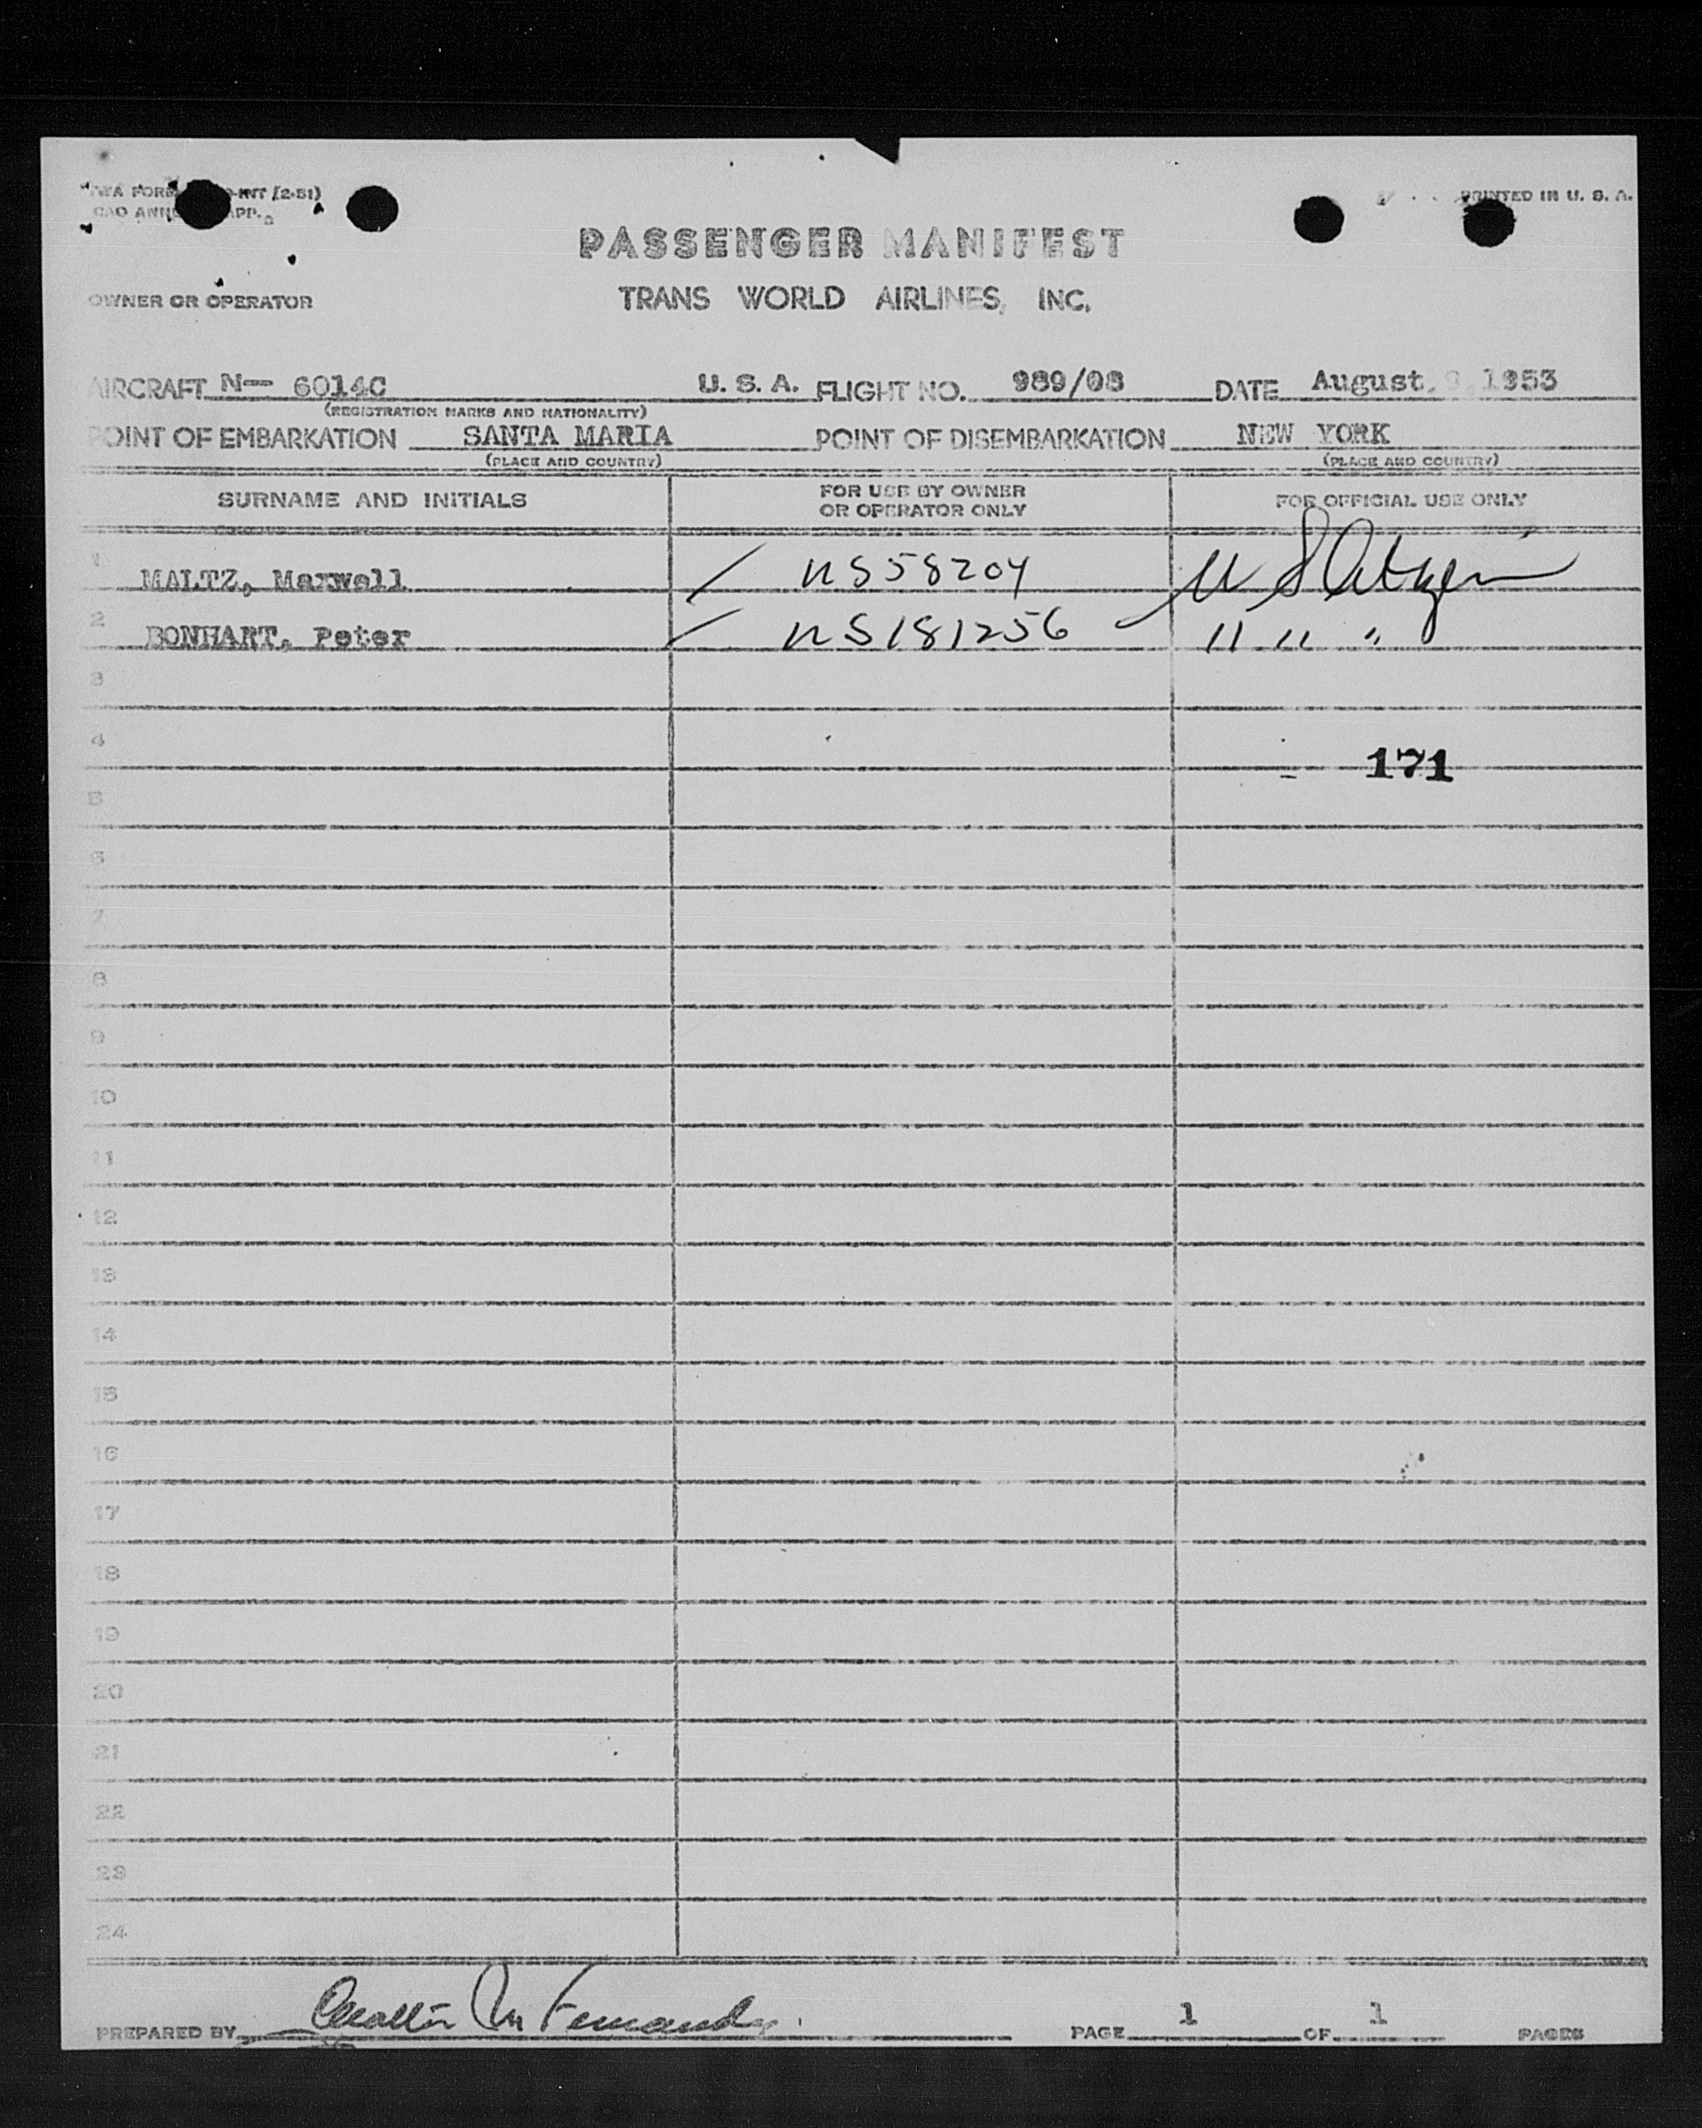 TWA FORM -INT (2-51) PRINTED IN U. S. A.
CAO ANNE APP.
PASSENGER MANIFEST
OWNER OR OPERATOR TRANS WORLD AIRLINES, INC.
AIRCRAFT N— 6014C U. S. A. FLIGHT NO. 989/08 DATE August, 9, 1953
(REGISTRATION MARKS AND NATIONALITY)
POINT OF EMBARKATION SANTA MARIA POINT OF DISEMBARKATION NEW YORK
(PLACE AND COUNTRY) (PLACE AND COUNTRY)
SURNAME AND INITIALS FOR USE BY OWNER OR OPERATOR ONLY FOR OFFICIAL USE ONLY
1 MALTZ, Maxwell US58204 U S Citizen
2 BONHART, Peter US181256 " " "
3
4 171
5
6
7
8
9
10
11
12
13
14
15
16
17
18
19
20
21
22
23
24
PREPARED BY PAGE 1 OF 1 PAGES